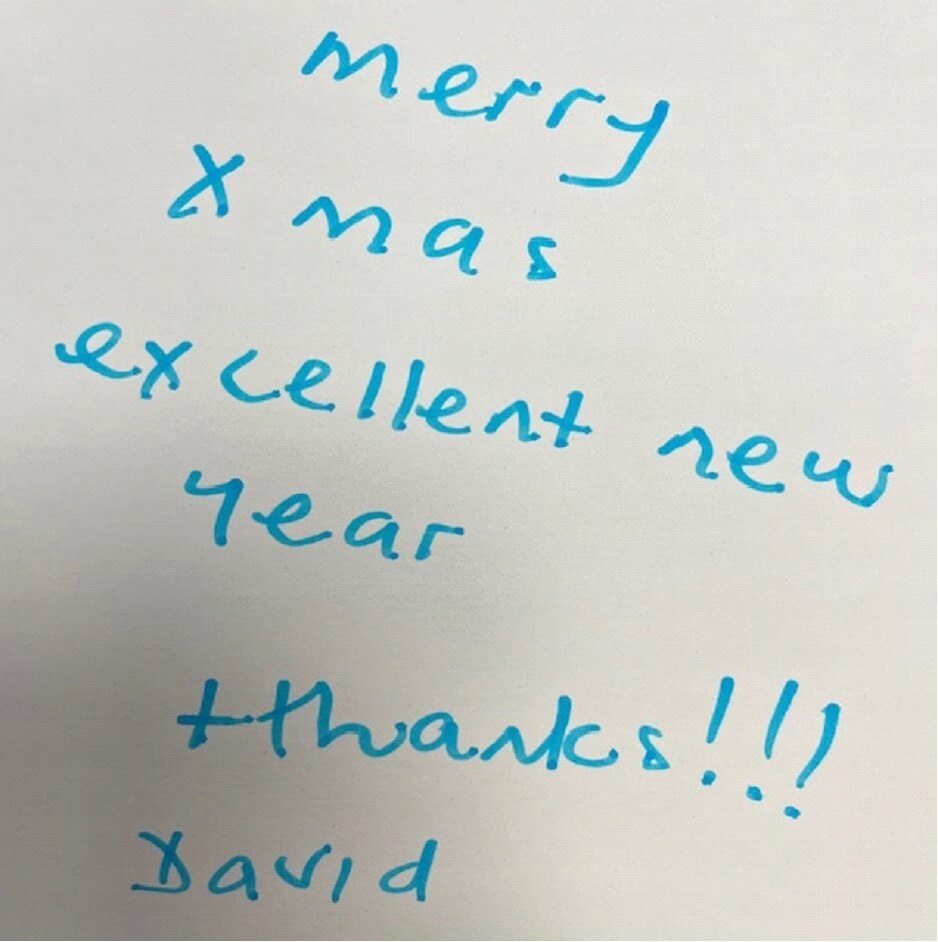 merry
x mas
excellent new
year
+thanks!!!
David